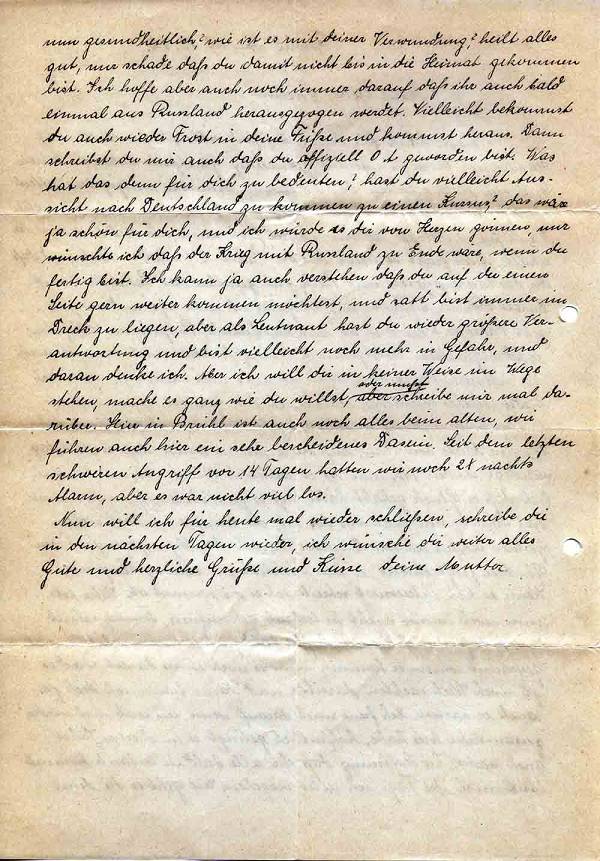 nun gesundheitlich? wie ist es mit deiner Verwundung? heilt alles
gut, nur schade daß du damit nicht bis in die Heimat gekommen
bist. Ich hoffe aber auch noch immer darauf daß ihr auch bald
einmal aus Russland herausgezogen werdet. Vielleicht bekommst
du auch wieder Frost in deine Füße und kommst heraus. Dann
schreibst du mir auch daß du offiziell O.A. geworden bist. Was
hat das denn für dich zu bedeuten? hast du vielleicht Aus-
sicht nach Deutschland zu kommen zu einen Kursus? das wär
ja schön für dich, und ich würde es dir von Herzen gönnen, nur
wünschte ich daß der Krieg mit Russland zu Ende wäre, wenn du
fertig bist. Ich kann ja auch verstehen daß du auf der einen
Seite gern weiter kommen möchtest, und satt bist immer im
Dreck zu liegen, aber als Leutnant hast du wieder größere Ver-
antwortung und bist vielleicht noch mehr in Gefahr, und
daran denke ich. Aber ich will dir in keiner Weise im Wege
stehen, mache es ganz wie du willst, oder mußt aber schreibe mir mal da-
rüber. Hier in Brühl ist auch noch alles beim alten, wir
führen auch hier ein sehr bescheidenes Dasein. Seit dem letzten
schweren Angriff vor 14 Tagen hatten wir noch 2x nachts
Alarm, aber es war nicht viel los.
Nun will ich für heute mal wieder schließen, schreibe dir
in den nächsten Tagen wieder, ich wünsche dir weiter alles
Gute und herzliche Grüße und Küsse deine Mutter